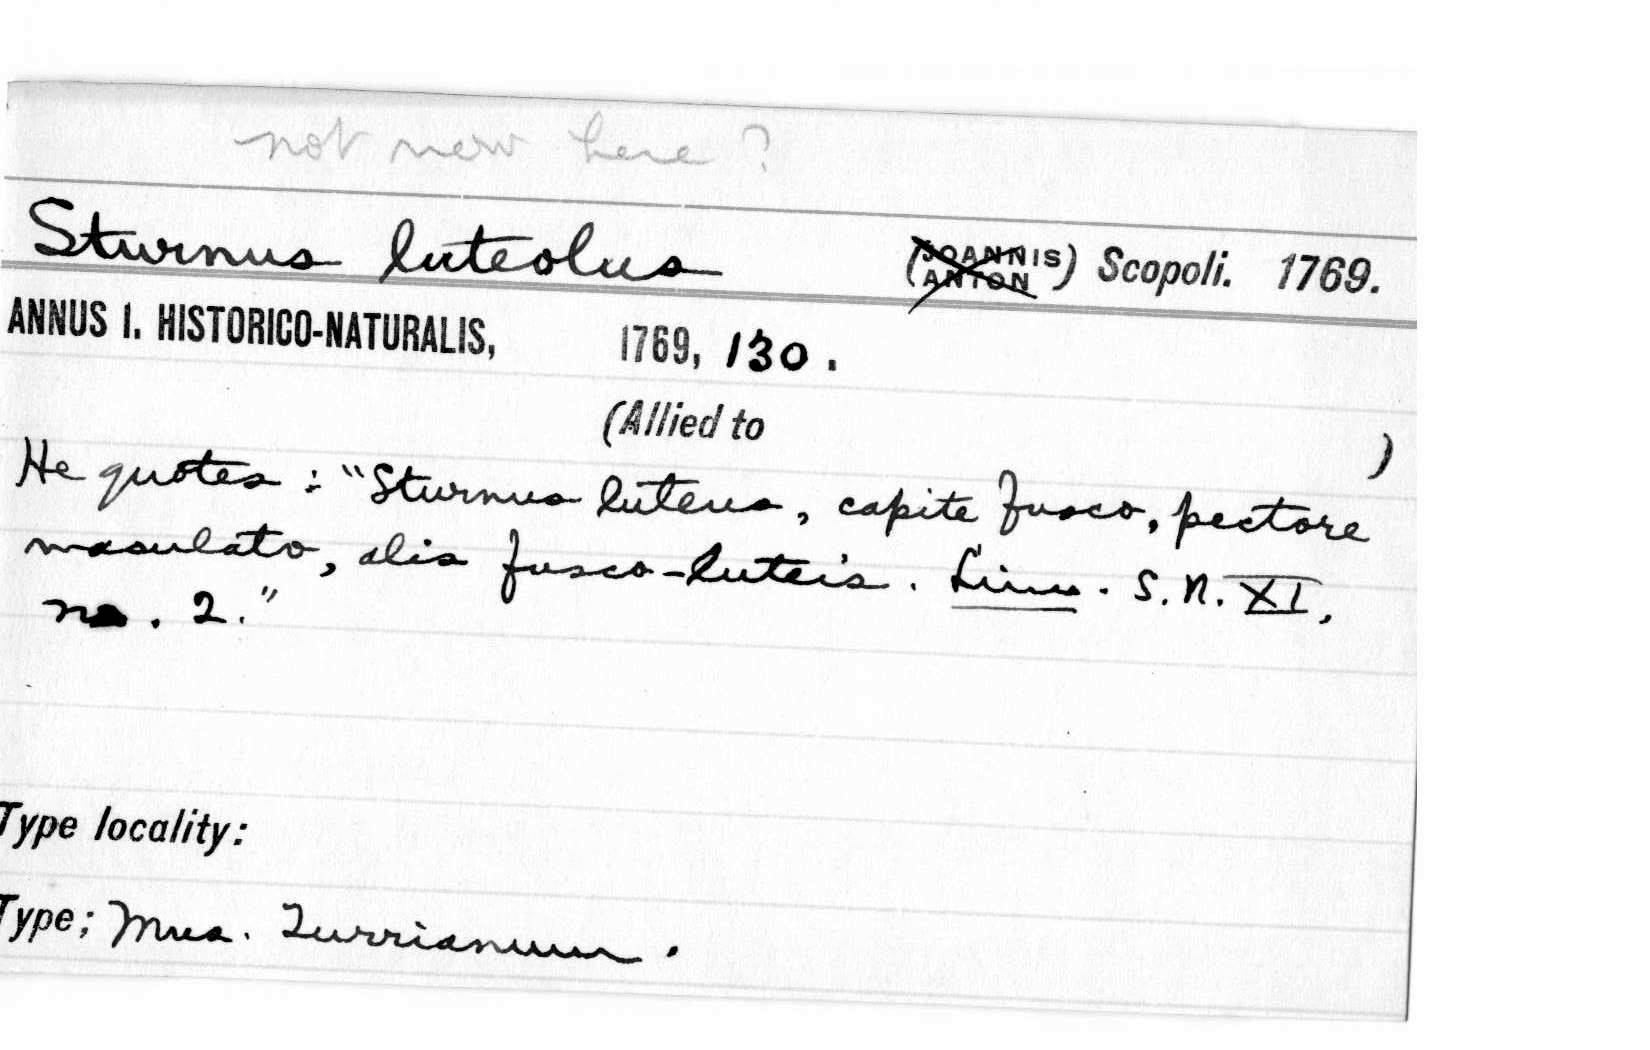 not new here ?
Sturnus luteolus (JOANNIS ANTON) Scopoli. 1769.
ANNUS I. HISTORICO-NATURALIS, 1769, 130.
(Allied to )
He quotes: "Sturnus luteus, capite fusco, pectore
masulato, alis fusco-luteis. Linn. S. N. XI,
no. 2."
Type locality:
Type; Mus. Turrianum.